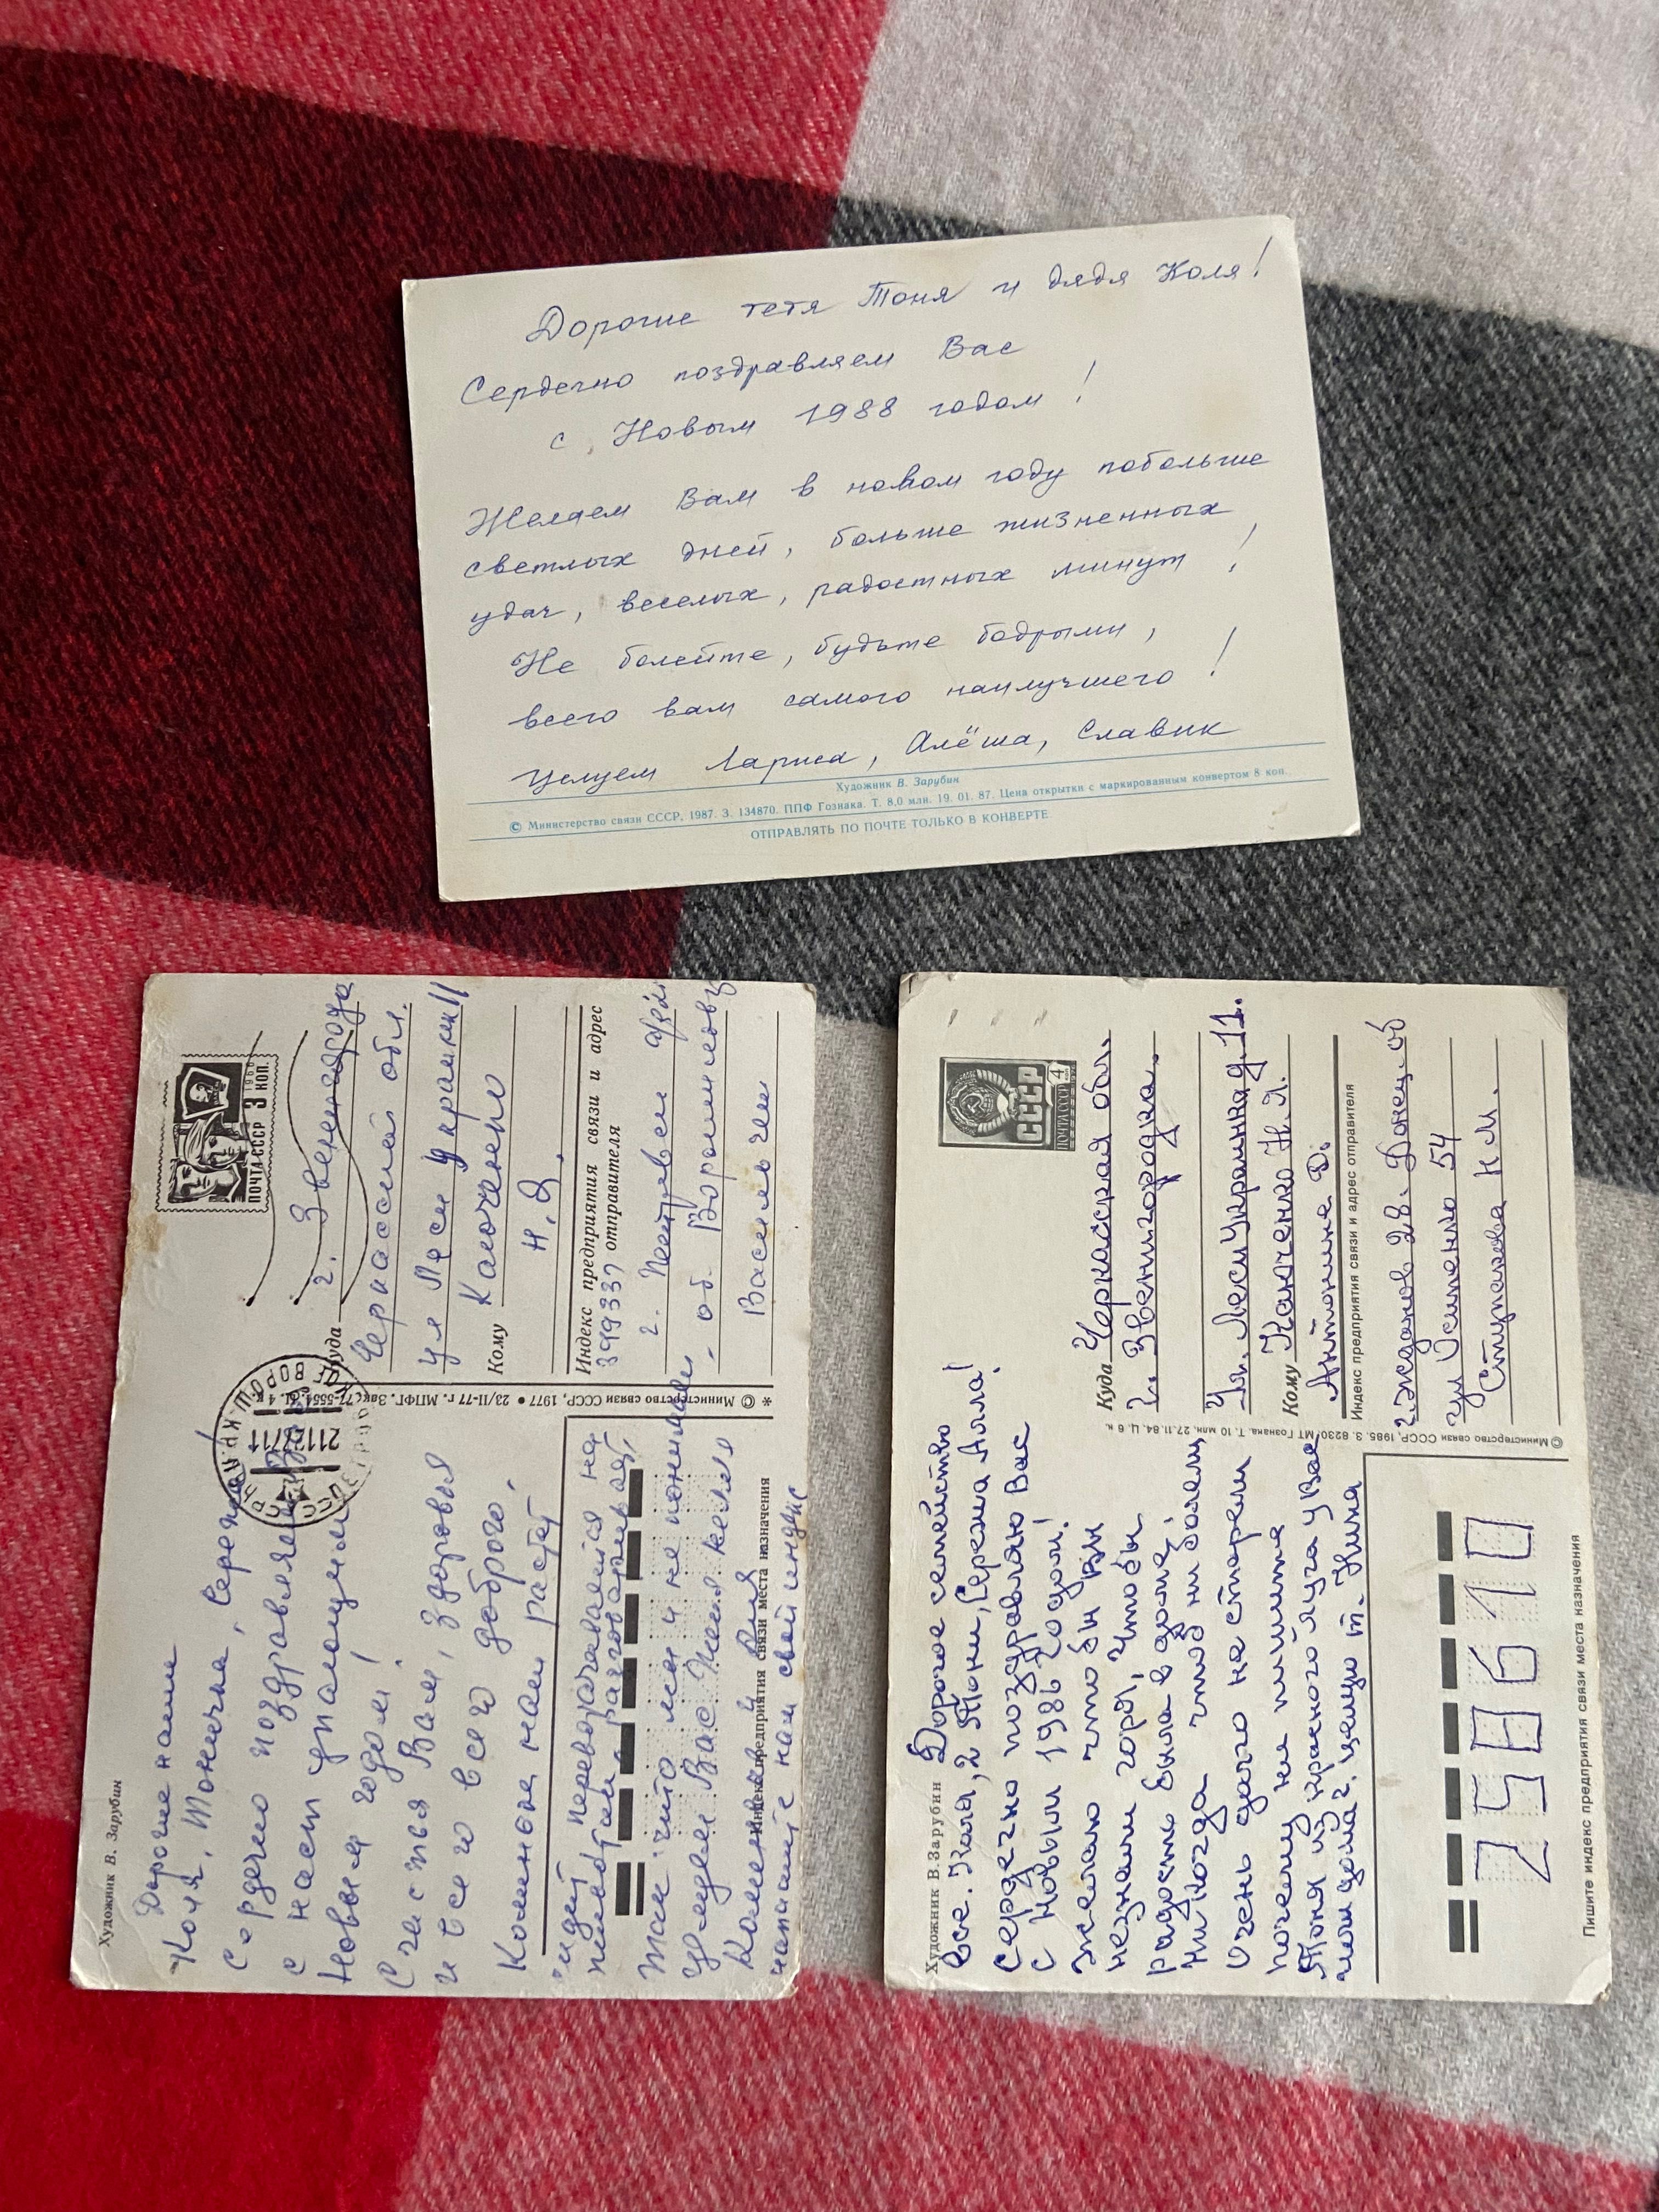 Дорогие тетя Тоня и дядя Коля!
Сердечно поздравляем Вас
с Новым 1988 годом!
Желаем Вам в новом году побольше
светлых дней, больше жизненных
удач, веселых, радостных минут!
Не болейте, будьте бодрыми,
всего вам самого наилучшего!
Целуем Лариса, Алёша, Славик
Художник В. Зарубин
© Министерство связи СССР, 1987. З. 134870. ППФ Гознака. Т. 8,0 млн. 19. 01. 87. Цена открытки с маркированным конвертом 8 коп.
ОТПРАВЛЯТЬ ПО ПОЧТЕ ТОЛЬКО В КОНВЕРТЕ
Художник В. Зарубин
Дорогие наши
Коля, Тонечка, Сережа!
Сердечно поздравляем Вас
с наступающим
Новым годом!
Счастья Вам, здоровья
и всего всего доброго.
Коминок наш растет
переворачивается на
так что мы и не понимаем
целуем Вас Женя
напишите нам свой индекс
ПОЧТА СССР 3 КОП.
1966
Куда г. Звенигородка
Черкасской обл.
ул Леси Украинки 11
Кому Каюченко
Н. Я.
Индекс предприятия связи и адрес
399337 отправителя
г.
об. Ворошиловгр
Васильчен
© Министерство связи СССР, 1977 • 23/II-77 г. МПФГ. Зак. 77-5554. Ц. 4 к.
Индекс предприятия связи места назначения
Художник В. Зарубин
Дорогое семейство
все. Коля, 2 Тони, Сережа Алла!
Сердечно поздравляю Вас
с Новым 1986 годом!
желаю что бы вы
незнали горя, что бы
радость была в доме,
Никогда чтоб ни болели
Очень долго не старели
почему не пишите
Тоня из красного луча у Вас
или дома? целую т. Нина
ПОЧТА СССР 4
СССР
Куда Черкасская обл.
г. Звенигородка.
Ул. Леси Украинки д. 11.
Кому Каюченко Н. Я.
Антонине Д.
Индекс предприятия связи и адрес отправителя
г. Жданов 28. Донец. об
ул Осипенко 54
Н М.
© Министерство связи СССР, 1985. З. 8230. МТ Гознака. Т. 10 млн. 27.11.84. Ц. 6 к.
258610
Пишите индекс предприятия связи места назначения